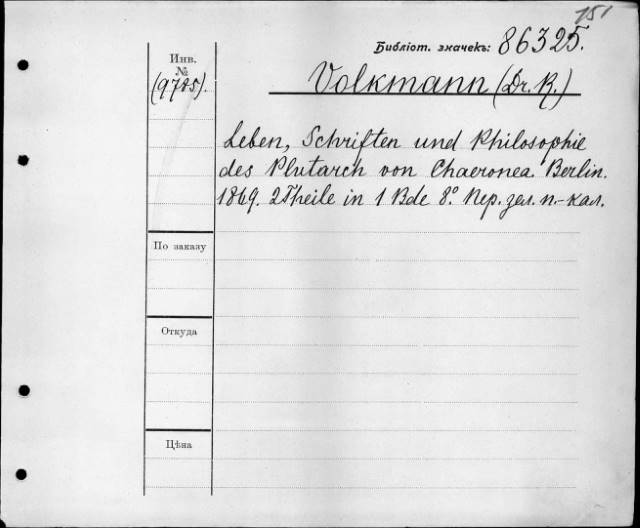 151
Библіот. значекъ: 86325.
Инв.
№
Volkmann (Dr. R.)
Leben, Schriften und Philosophie
des Plutarch von Chaeronea Berlin.
1869. 2 Theile in 1 Bde 8° Пер. зел. п.-кал.
По заказу
Откуда
Цѣна